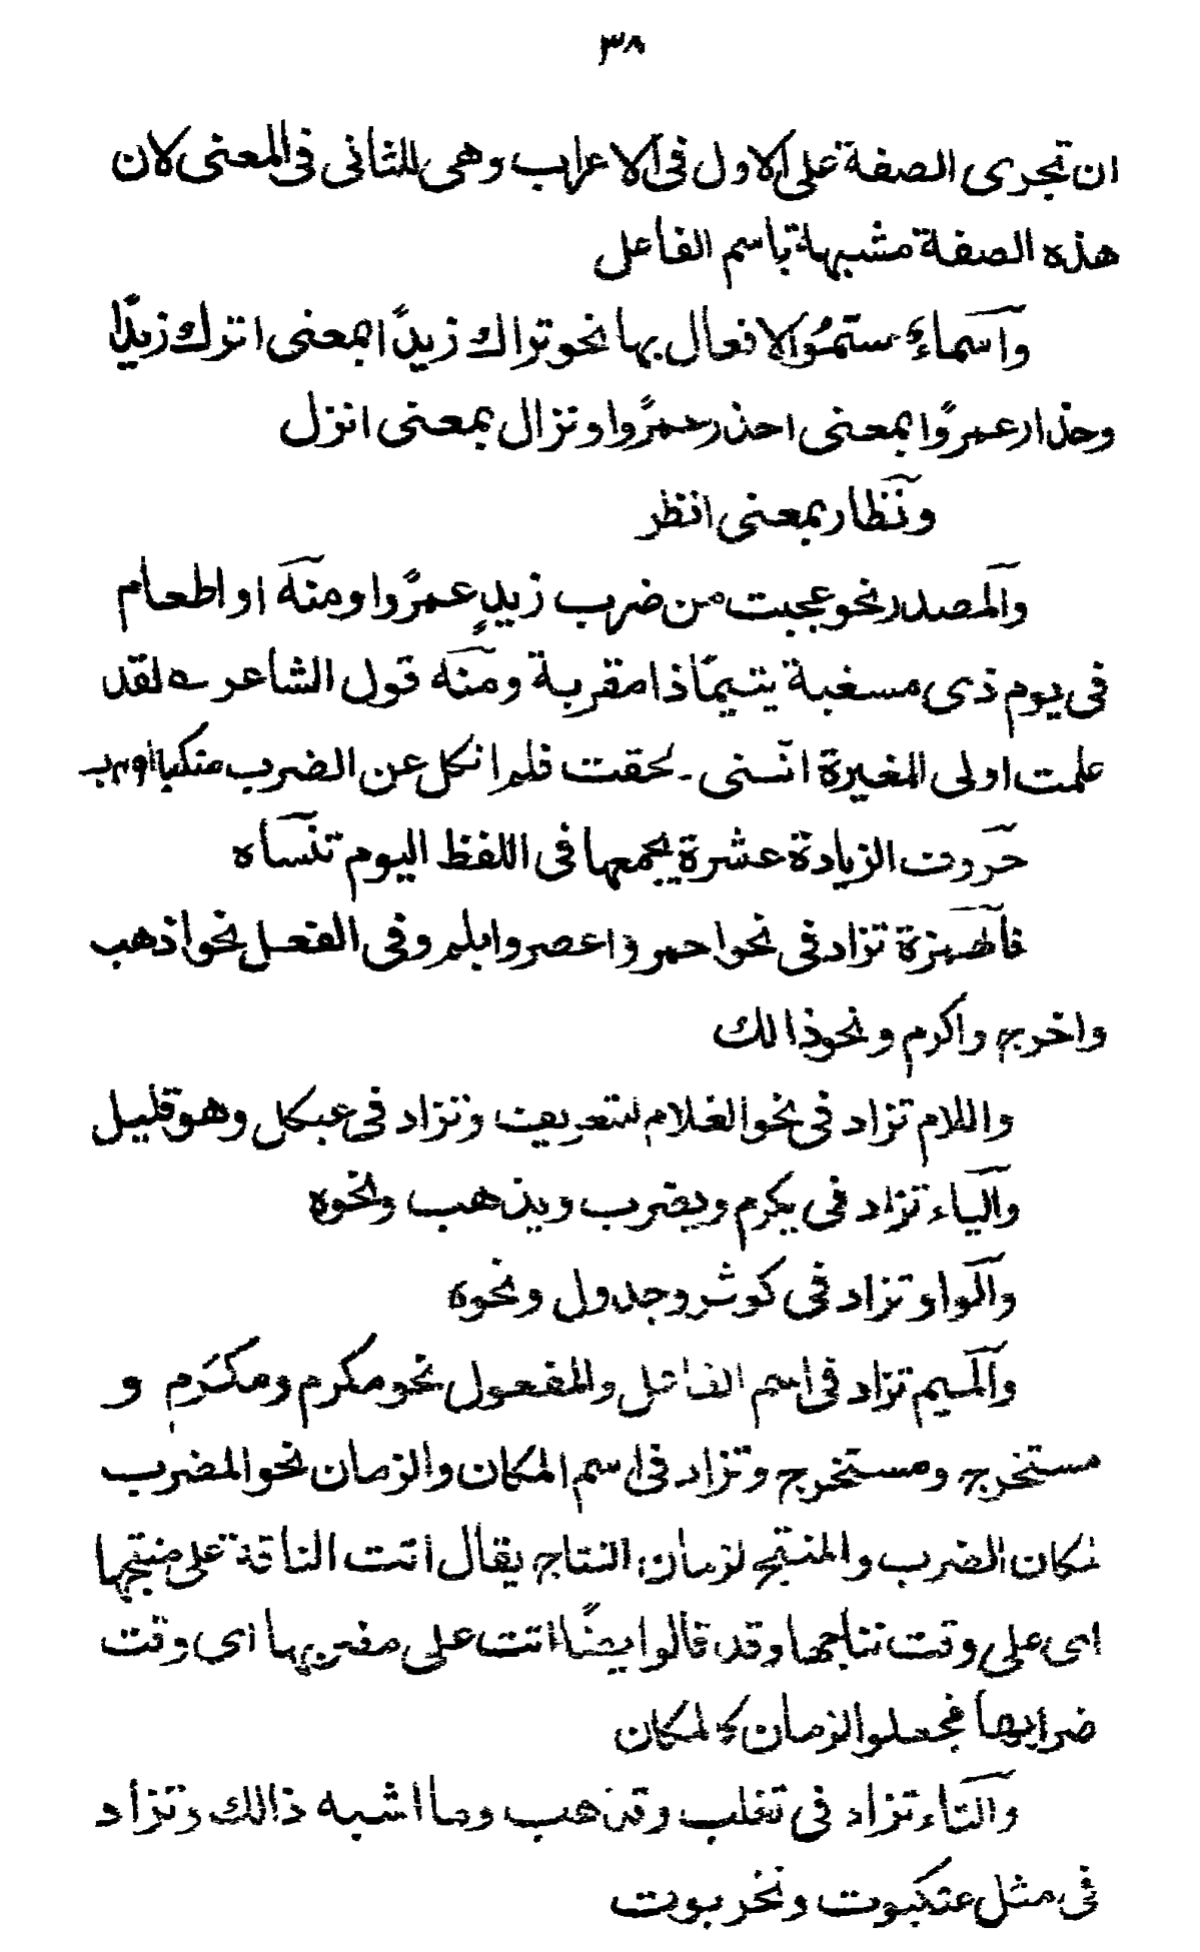 ٣٨
ان تجرى الصفة على الاول فى الاعراب وهى للثانى فى المعنى لان
هذه الصفة مشبهة باسم الفاعل
وآسماءٌ ستمُوا الافعال بها نحو تراك زيدًا بمعنى اترك زيدًا
وحذار عمرًوا بمعنى احذر عمرًوا ونزال بمعنى انزل
ونظار بمعنى انظر
والمصدر نحو عجبت من ضرب زيدٍ عمرًوا ومنه او اطعام
فى يوم ذى مسغبة يتيمًا ذا مقربة ومنه قول الشاعر ے لقد
علمت اولى المغيرة انّنى ـ لحقت فلم انكل عن الضرب
حروف الزيادة عشرة يجمعها فى اللفظ اليوم تنساه
فالهمزة تزاد فى نحو احمر واعصر وابلم وفى الفعل نحو اذهب
واخرج واكرم ونحو ذالك
واللام تزاد فى نحو الغلام للتعريف وتزاد فى عبكل وهو قليل
والياء تزاد فى يكرم ويضرب ويذهب ونحوه
والواو تزاد فى كوثر وجدول ونحوه
والميم تزاد فى اسم الفاعل والمفعول نحو مكرم ومكرَم و
مستخرج ومستخرج وتزاد فى اسم المكان والزمان نحو المضرب
لمكان الضرب والمنتج لزمان النتاج يقال اتت الناقة على منتجها
اى على وقت نتاجها وقد قالوا ايضًا اتت على مضربها اى وقت
ضرابها فجعلوا الزمان كالمكان
والتاء تزاد فى تغلب وتذهب وما اشبه ذالك وتزاد
فى مثل عنكبوت ونخربوت